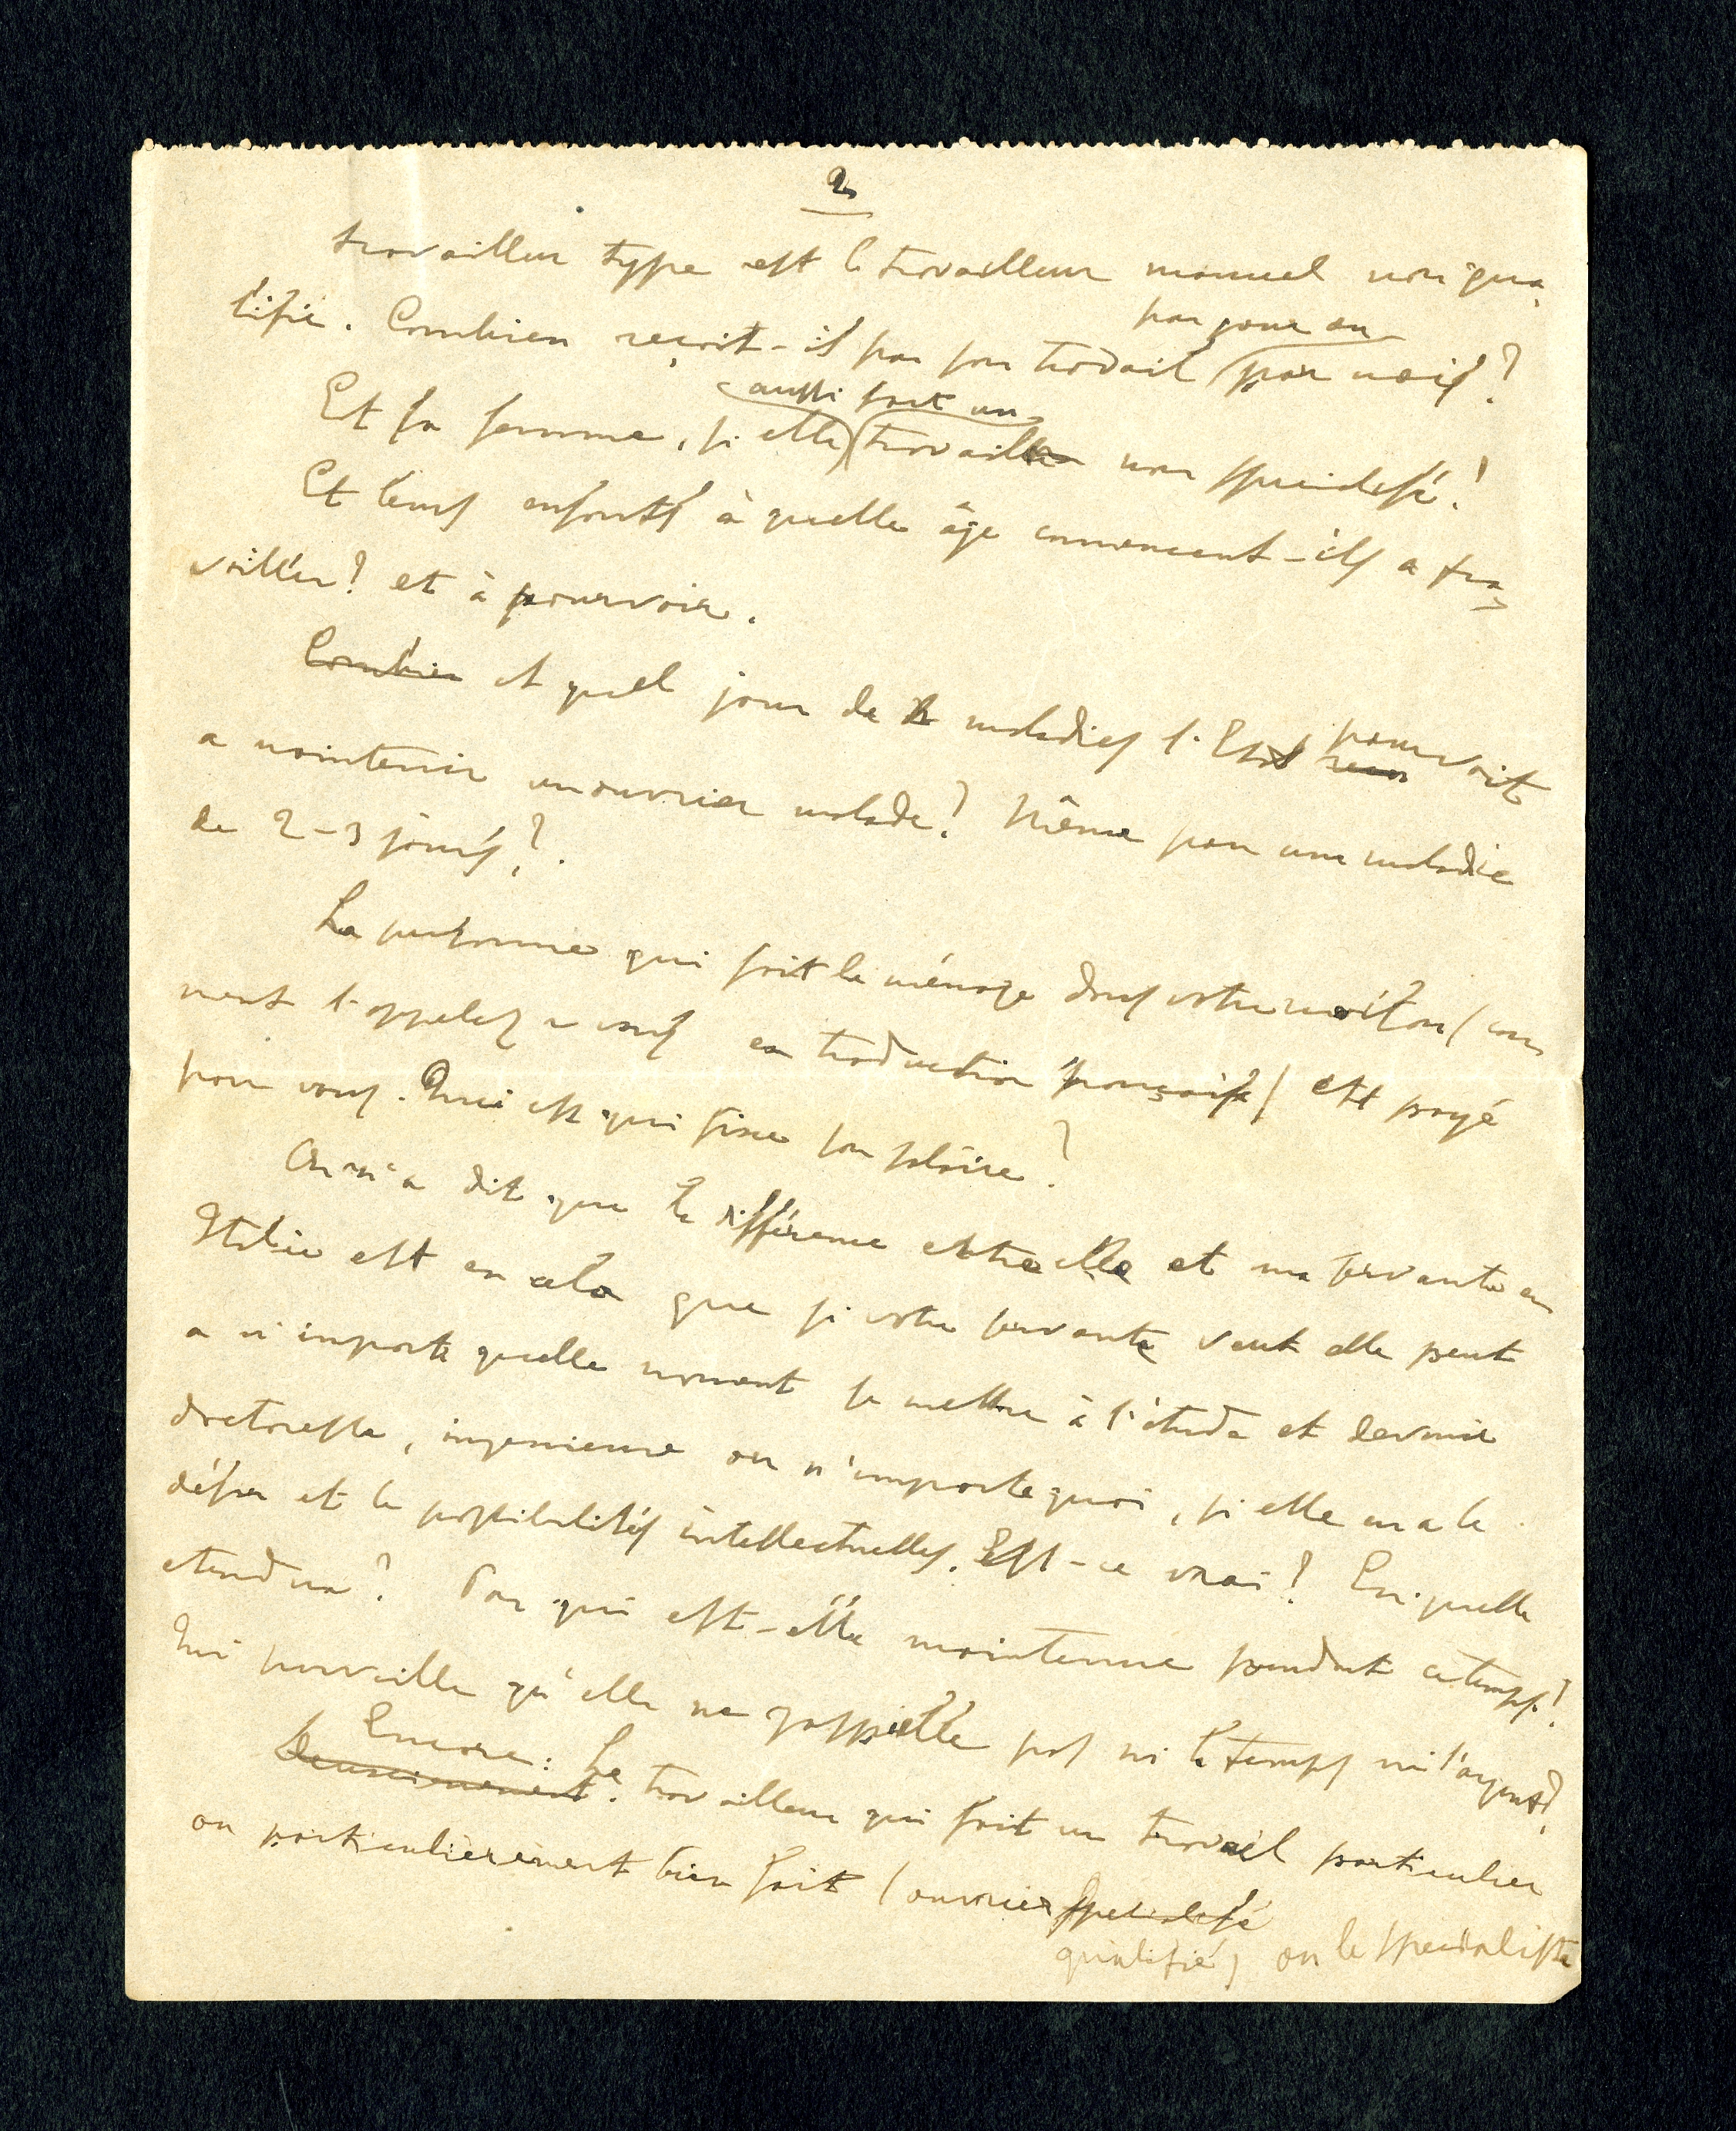 2
travailleur type est le travailleur manuel non qua
lifié. Combien reçoit-il par son travail par jour ou par mois?
Et sa femme, si elle aussi fait un travail non specialisé?
Et leurs enfants à quelle âge commencent-ils a tra
vailler? et à pourvoir.
Combien et quel jour de maladies l'Etat pourvoit
a maintenir un ouvrier malade? Même pour une maladie
de 2-3 jours?.
La personne qui fait le ménage dans votre maison (com
ment l'appelez vous en traduction française) est payé
par vous. Qui est qui fixe son salaire?
On m'a dit que la différence entre elle et ma servante en
Italie est en cela que si votre servante veut elle peut
a n'importe quelle moment se mettre à l'étude et devenir
doctoresse, ingenieure ou n'importe quoi, si elle en a le
désir et le possibilités intellectuelles. Est-ce vrai? En quelle
etendue? Par qui est-elle maintenue pendant ce temps?
Qui surveille qu'elle ne gaspille pas ni le temps ni l'argent?
Encore: Le travailleur qui fait un travail particulier
ou particulièrement bien fait (ouvrier specialisé
qualifié) ou le specialiste